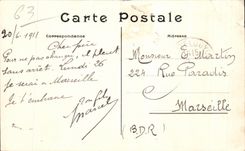 63
Carte Postale
Correspondance
Adresse
20/6 1911
Cher père
Pour ne pas changer, il pleut
sans arrêt. Lundi 26
Je serai à Marseille
Je t'embrasse
ton fils
Marcel
Monsieur E. Martin
224 Rue Paradis
Marseille
(BDR)